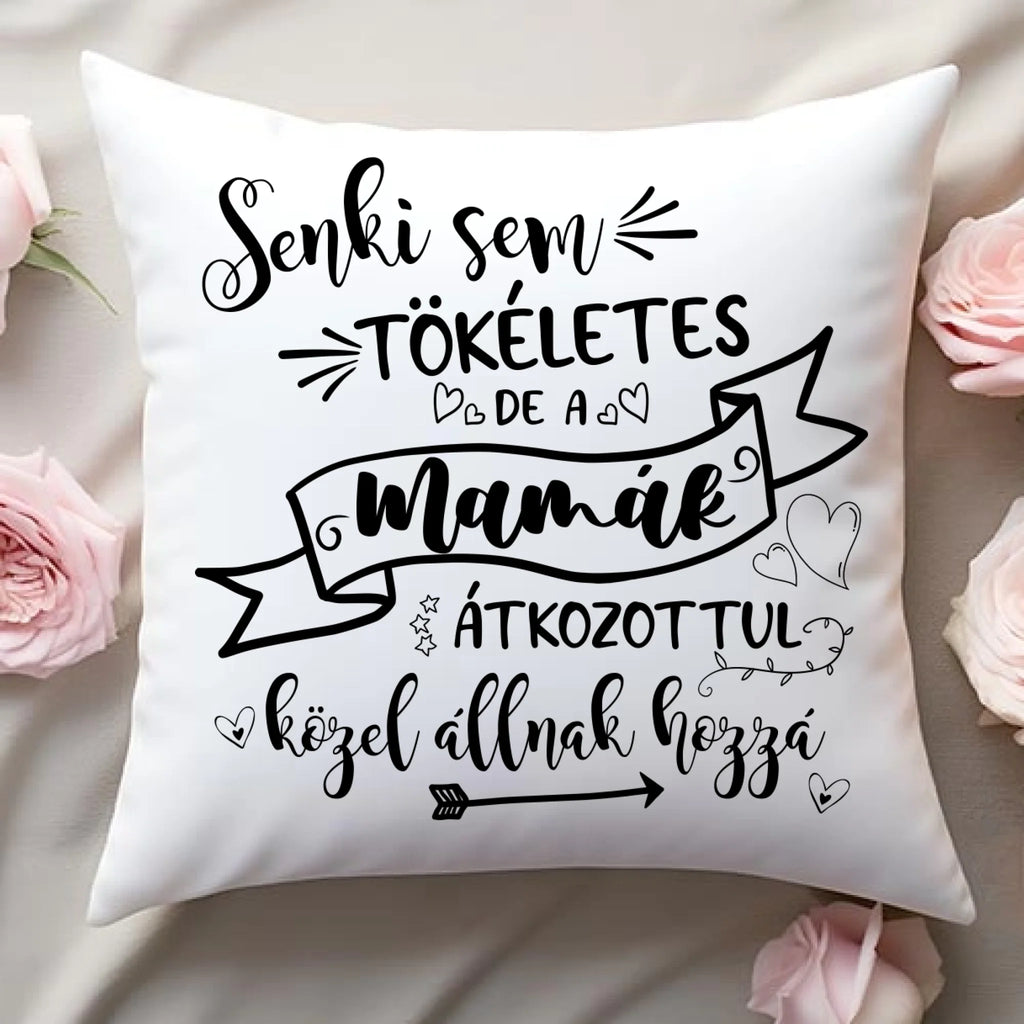 Senki sem
TÖKÉLETES
DE A
Mamák
ÁTKOZOTTUL
közel állnak hozzá